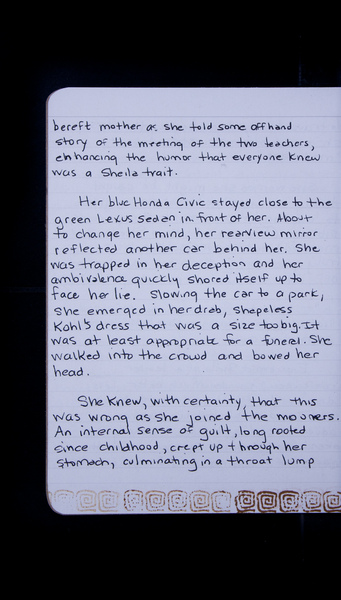 bereft mother as she told some offhand
story of the meeting of the two teachers,
enhancing the humor that everyone knew
was a Sheila trait.
Her blue Honda Civic stayed close to the
green Lexus sedan in front of her. About
to change her mind, her rearview mirror
reflected another car behind her. She
was trapped in her deception and her
ambivalence quickly shored itself up to
face her lie. Slowing the car to a park,
she emerged in her drab, shapeless
Kohl's dress that was a size too big. It
was at least appropriate for a funeral. She
walked into the crowd and bowed her
head.
She knew, with certainty, that this
was wrong as she joined the mourners.
An internal sense of guilt, long rooted
since childhood, crept up through her
stomach, culminating in a throat lump